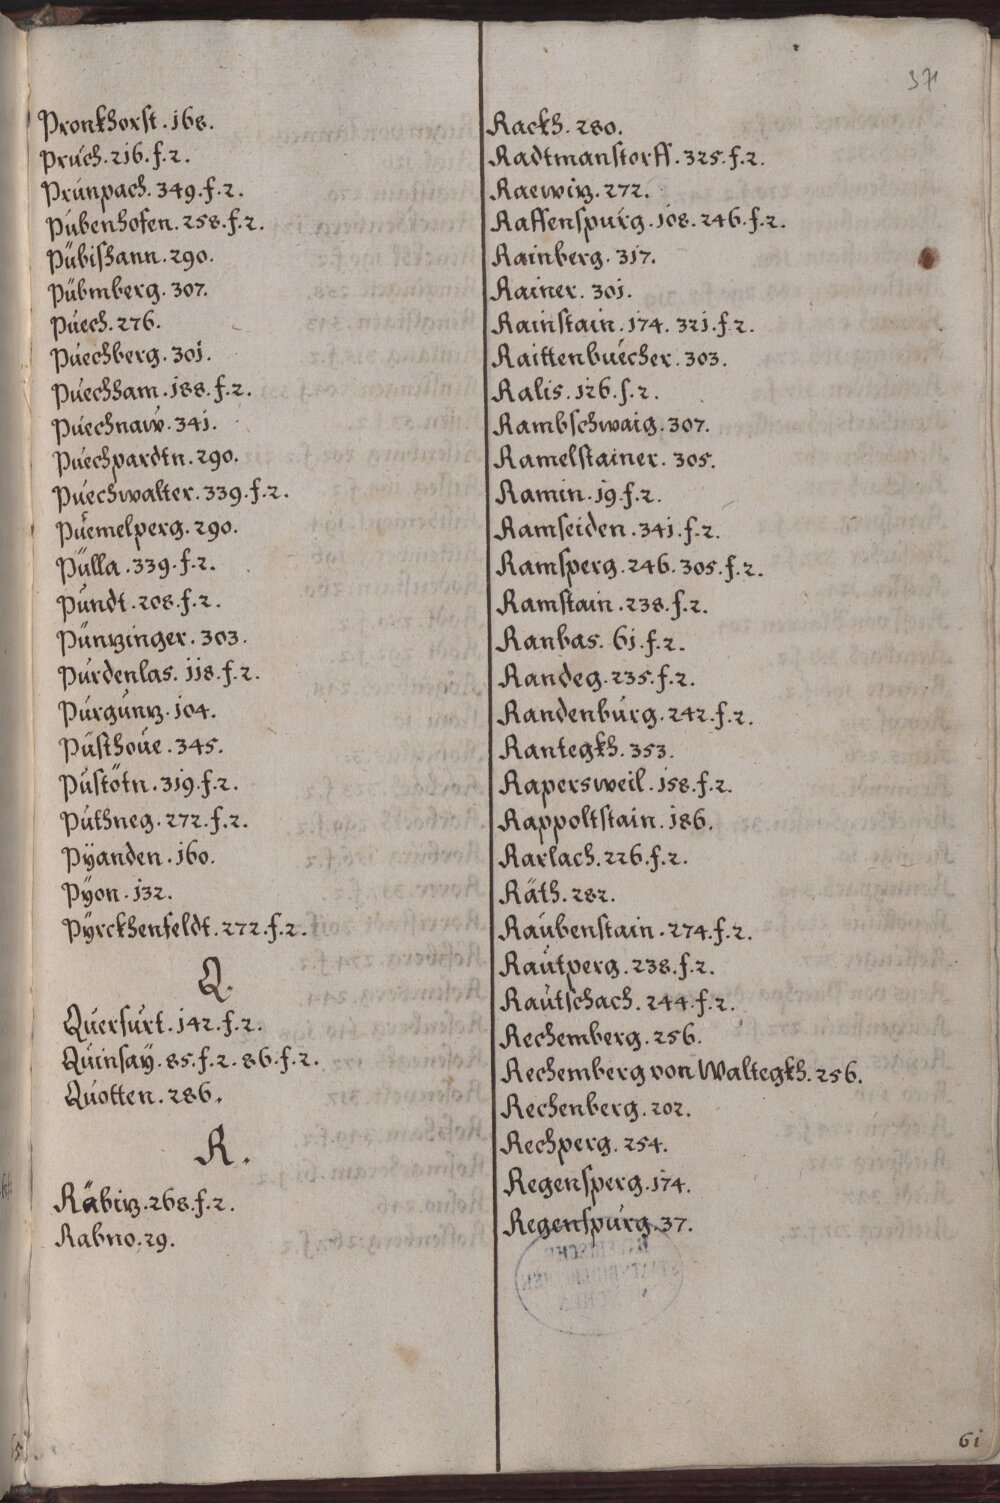 37
Pronkhorst. 168.
Pruch. 216. f. 2.
Prunpach. 349. f. 2.
Pubenhofen. 258. f. 2.
Pübishann. 290.
Pübmberg. 307.
Puech. 276.
Puechberg. 301.
Puechham. 188. f. 2.
Puechnaw. 341.
Puechpardtn. 290.
Puechwalter. 339. f. 2.
Puemelperg. 290.
Pülla. 339. f. 2.
Pundt. 208. f. 2.
Püntzinger. 303.
Purdenlas. 118. f. 2.
Purguntz. 104.
Püsthoue. 345.
Pustötn. 319. f. 2.
Puthneg. 272. f. 2.
Pÿanden. 160.
Pÿon. 132.
Pÿrckhenfeldt. 272. f. 2.
Q.
Querfurt. 142. f. 2.
Quinsaÿ. 85. f. 2. 86. f. 2.
Quotten. 286.
R.
Räbitz. 268. f. 2.
Rabno. 29.
Rackh. 280.
Radtmanstorff. 325. f. 2.
Raewitz. 272.
Raffenspurg. 108. 246. f. 2.
Rainberg. 317.
Rainer. 301.
Rainstain. 174. 321. f. 2.
Raittenbuecher. 303.
Ralis. 126. f. 2.
Rambschwaig. 307.
Ramelstainer. 305.
Ramin. 19. f. 2.
Ramseiden. 341. f. 2.
Ramsperg. 246. 305. f. 2.
Ramstain. 238. f. 2.
Ranbas. 61. f. 2.
Randeg. 235. f. 2.
Randenburg. 242. f. 2.
Rantegkh. 353.
Rapersweil. 158. f. 2.
Rappoltstain. 186.
Rarlach. 226. f. 2.
Räth. 282.
Raubenstain. 274. f. 2.
Rautperg. 238. f. 2.
Rautschach. 244. f. 2.
Rechemberg. 256.
Rechemberg von Waltegkh. 256.
Rechenberg. 202.
Rechperg. 254.
Regensperg. 174.
Regenspurg. 37.
61